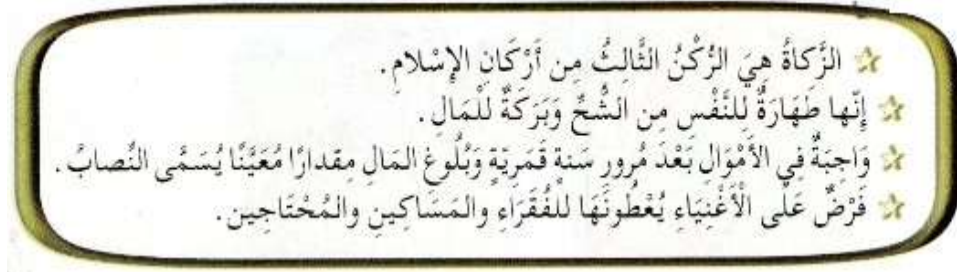 الزَّكاةُ هِيَ الرُّكْنُ الثَّالِثُ مِن أَرْكَانِ الإِسْلامِ.
إِنَّها طَهَارَةٌ لِلنَّفْسِ مِن الشُّحِّ وَبَرَكَةٌ لِلْمَالِ.
وَاجِبَةٌ فِي الأَمْوَالِ بَعْدَ مُرورِ سَنةٍ قَمَرِيّةٍ وَبُلُوغِ المَالِ مِقدارًا مُعَيَّنًا يُسَمَّى النِّصابُ.
فَرْضٌ عَلَى الأَغْنِيَاءِ يُعْطُونَهَا لِلْفُقَرَاءِ والمَسَاكِينِ والمُحْتَاجِين.